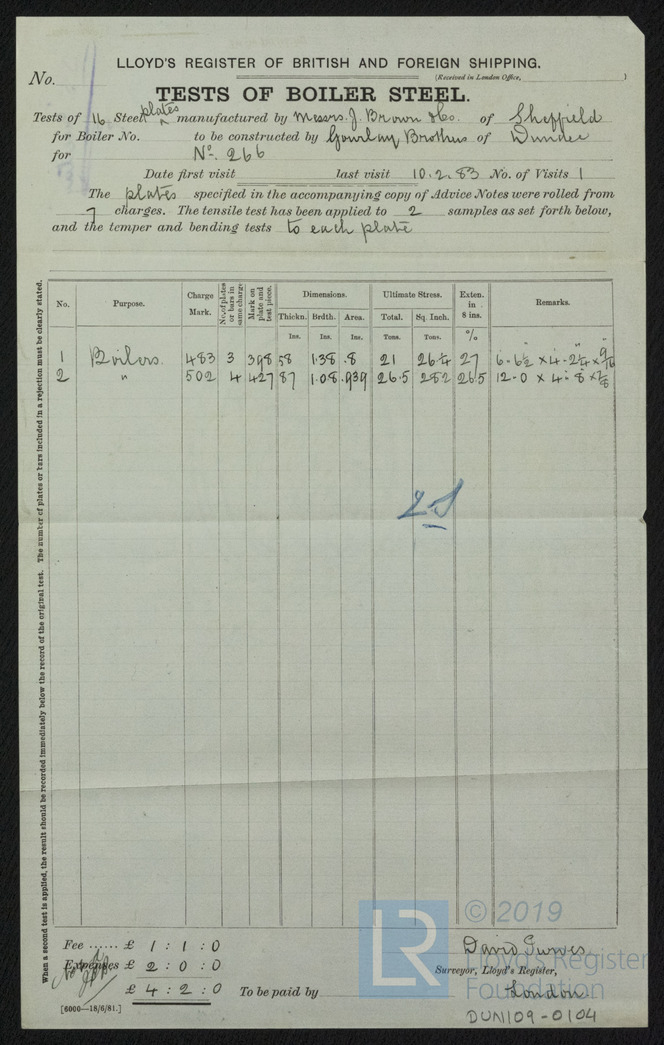 LLOYD'S REGISTER OF BRITISH AND FOREIGN SHIPPING.
No.
(Received in London Office, )
TESTS OF BOILER STEEL.
Tests of 16 Steel plates manufactured by Messrs. J. Brown & Co. of Sheffield
for Boiler No. to be constructed by Gourlay Brothers of Dundee
for No. 266
Date first visit last visit 10.2.83 No. of Visits 1
The plates specified in the accompanying copy of Advice Notes were rolled from
7 charges. The tensile test has been applied to 2 samples as set forth below,
and the temper and bending tests to each plate
No. Purpose. Charge Mark. No. of plates or bars in same charge Mark on plate and test piece. Dimensions. Ultimate Stress. Exten. in 8 ins. Remarks.
Thickn. Brdth. Area. Total. Sq. Inch.
Ins. Ins. Ins. Tons. Tons. %
1 Boilers. 483 3 398 58 1.38 .8 21 26.4 27 6-6½ × 4-2¼ × 9/16
2 " 502 4 427 87 1.08 .939 26.5 282 26.5 12-0 × 4-8 × 7/8
2S
When a second test is applied, the result should be recorded immediately below the record of the original test. The number of plates or bars included in a rejection must be clearly stated.
Fee ...... £ 1 : 1 : 0
Expenses £ 2 : 0 : 0
£ 4 : 2 : 0
To be paid by
David Purves
Surveyor, Lloyd's Register,
London
[6000—18/6/81.]
DUN109-0104
LR
© 2019
Lloyd's Register
Foundation